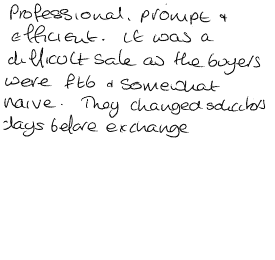 Professional, prompt &
efficient. It was a
difficult sale as the buyers
were ftb & somewhat
naive. They changed solicitors
days before exchange